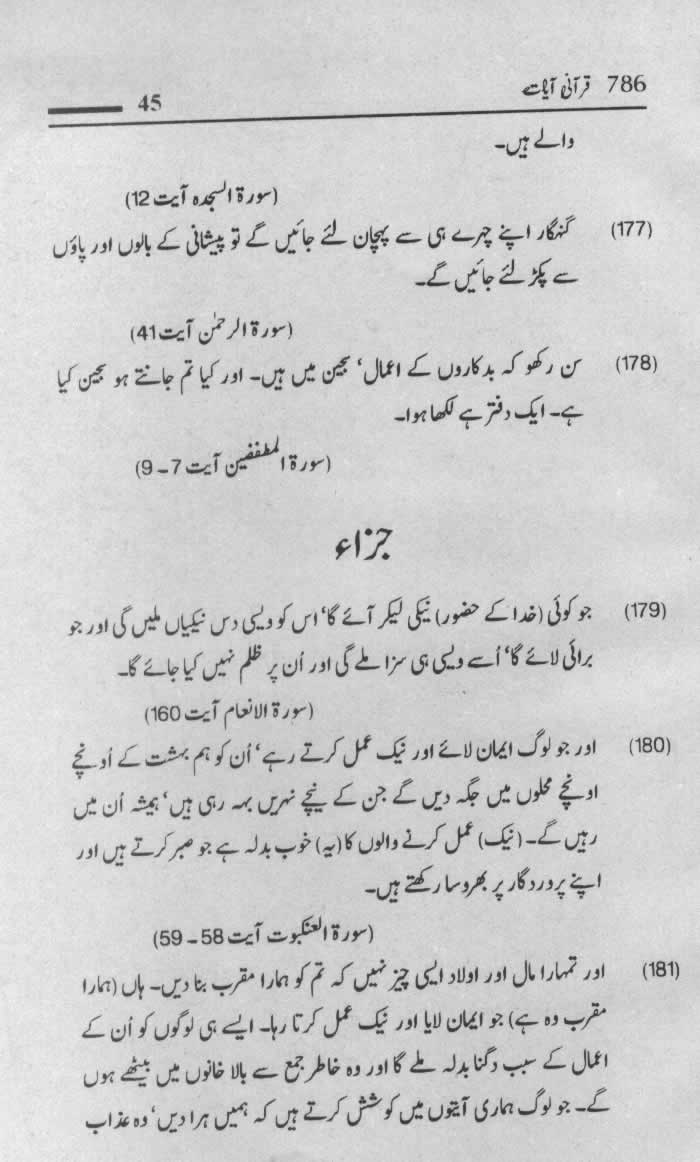 786 قرآنی آیات 45
والے ہیں۔
(سورۃ السجدہ آیت 12)
(177) گنہگار اپنے چہرے ہی سے پہچان لئے جائیں گے تو پیشانی کے بالوں اور پاؤں
سے پکڑ لئے جائیں گے۔
(سورۃ الرحمٰن آیت 41)
(178) سن رکھو کہ بدکاروں کے اعمال‘ سجین میں ہیں۔ اور کیا تم جانتے ہو سجین کیا
ہے۔ ایک دفتر ہے لکھا ہوا۔
(سورۃ المطففین آیت 7 ۔ 9)
جزاء
(179) جو کوئی (خدا کے حضور) نیکی لیکر آئے گا‘ اس کو ویسی دس نیکیاں ملیں گی اور جو
برائی لائے گا‘ اُسے ویسی ہی سزا ملے گی اور اُن پر ظلم نہیں کیا جائے گا۔
(سورۃ الانعام آیت 160)
(180) اور جو لوگ ایمان لائے اور نیک عمل کرتے رہے‘ اُن کو ہم بہشت کے اُونچے
اونچے محلوں میں جگہ دیں گے جن کے نیچے نہریں بہہ رہی ہیں‘ ہمیشہ اُن میں
رہیں گے۔ (نیک) عمل کرنے والوں کا (یہ) خوب بدلہ ہے جو صبر کرتے ہیں اور
اپنے پروردگار پر بھروسا رکھتے ہیں۔
(سورۃ العنکبوت آیت 58 ۔ 59)
(181) اور تمہارا مال اور اولاد ایسی چیز نہیں کہ تم کو ہمارا مقرب بنا دیں۔ ہاں (ہمارا
مقرب وہ ہے) جو ایمان لایا اور نیک عمل کرتا رہا۔ ایسے ہی لوگوں کو اُن کے
اعمال کے سبب دگنا بدلہ ملے گا اور وہ خاطر جمع سے بالا خانوں میں بیٹھے ہوں
گے۔ جو لوگ ہماری آیتوں میں کوشش کرتے ہیں کہ ہمیں ہرا دیں‘ وہ عذاب